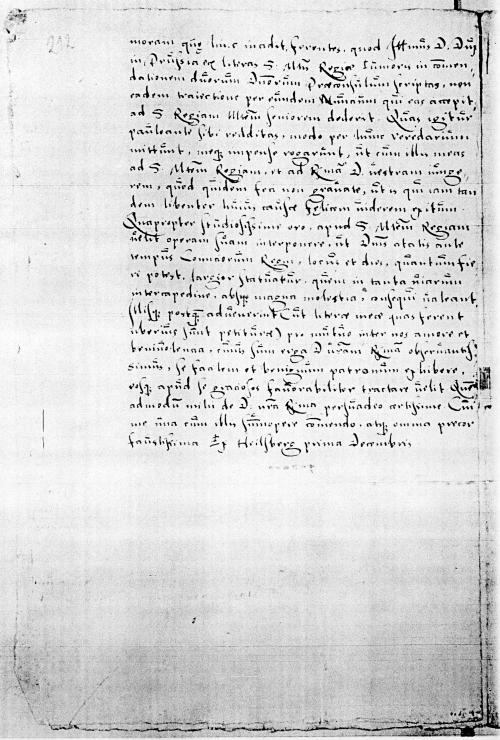 212
moram quoque huc incidit, ferentes, quod Illmus D. Dux
in Prussia ex literas S. Mtem Regiae Iunioris in comen
dationem duorum Dnorum Praeconsulum scriptas, non
eadem traiectione per eundem Nuncium qui eas accepit,
ad S Regiam Mtem seniorem dederit. Quas igitur
pauloante sibi redditas, modo per hunc veredarium
mittunt, meque impense rogarunt, ut cum illis meas
ad S. Mtem Regiam, et ad Rmam D. vestram iunge
rem, quod quidem feci non gravate, ut qui iam tan
dem libenter huius causae felicem viderem exitum.
Quapropter studiosissime oro, apud S Mtem Regiam
velit operam suam interponere, ut Dnis aetatis ante
tempus Comiciorum Regni, locus et dies, quantum fie
ri potest, largior statuatur, quem in tanta viarum
intercapedine, absque magna molestia, consequi valeant
Illisque postquam advenerint (ut literae meae quas ferent
uberius sunt petiturae) pro mutuo inter nos amore et
benivolencia, cuius sum erga D vram Rmam observantis
simus, se facilem et benignum patronum exhibere,
eosque apud se graciose favorabiliter tractare velit Quem
admodum mihi de D. vra Rma persuadeo certissime Cui
me una cum illis summopere comendo, atque omnia precor
faustissima Ex Heilsberg prima Decembris